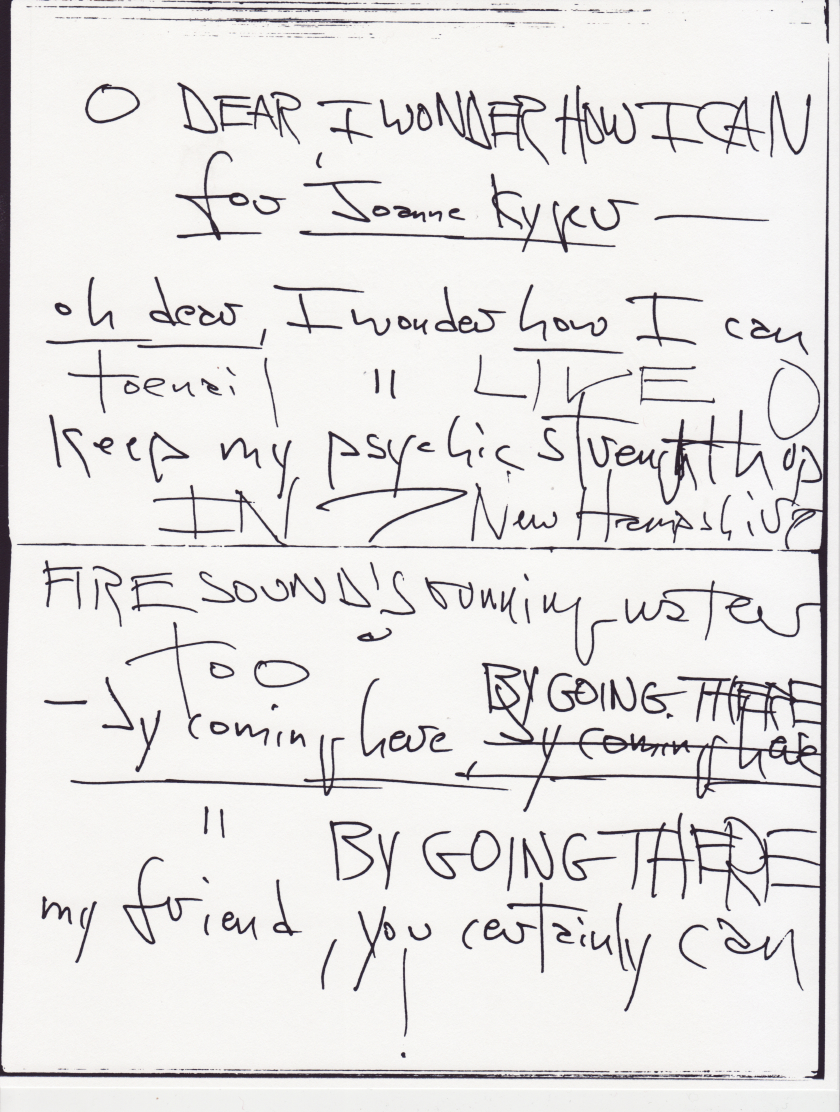 O DEAR I WONDER HOW I CAN
for Joanne Kyger —
oh dear, I wonder how I can
toenail " LIVE O
keep my psychic strength up
IN New Hampshire
FIRE SOUND'S running water
TOO
BY GOING THERE
— by coming here, by coming here
" BY GOING THERE
my friend, you certainly can!